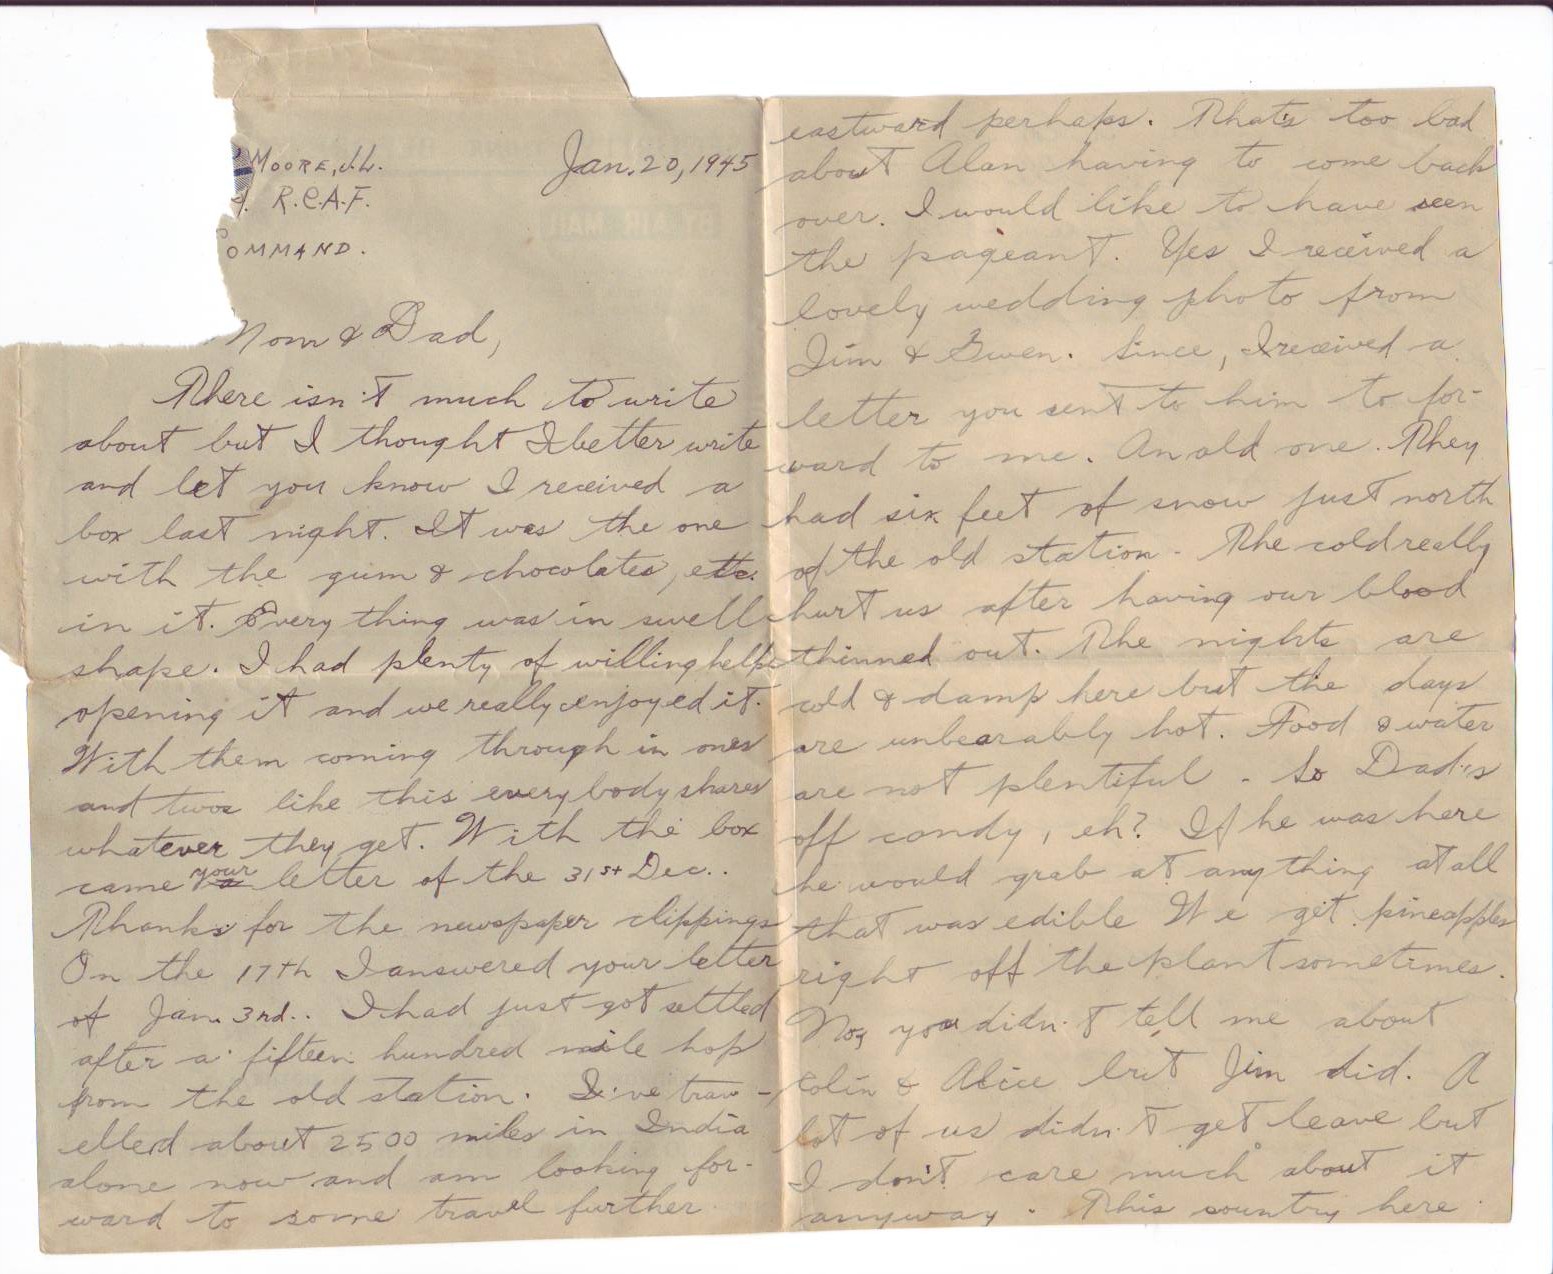 MOORE, J.L.
Jan. 20, 1945
R.C.A.F.
OMMAND.
Mom & Dad,
There isn't much to write
about but I thought I better write
and let you know I received a
box last night. It was the one
with the gum & chocolates, etc.
in it. Every thing was in swell
shape. I had plenty of willing help
opening it and we really enjoyed it.
With them coming through in ones
and twos like this everybody shares
whatever they get. With the box
came your letter of the 31st Dec..
Thanks for the newspaper clippings
On the 17th I answered your letter
of Jan. 3rd.. I had just got settled
after a fifteen hundred mile hop
from the old station. I've trav-
elled about 2500 miles in India
alone now and am looking for-
ward to some travel further
eastward perhaps. That's too bad
about Alan having to come back
over. I would like to have seen
the pageant. Yes I received a
lovely wedding photo from
Jim & Gwen. Since, I received a
letter you sent to him to for-
ward to me. An old one. They
had six feet of snow just north
of the old station. The cold really
hurt us after having our blood
thinned out. The nights are
cold & damp here but the days
are unbearably hot. Food & water
are not plentiful. So Dad's
off candy, eh? If he was here
he would grab at anything at all
that was edible We get pineapples
right off the plant sometimes.
No, you didn't tell me about
Colin & Alice but Jim did. A
lot of us didn't get leave but
I don't care much about it
anyway. This country here
BY AIR MAIL